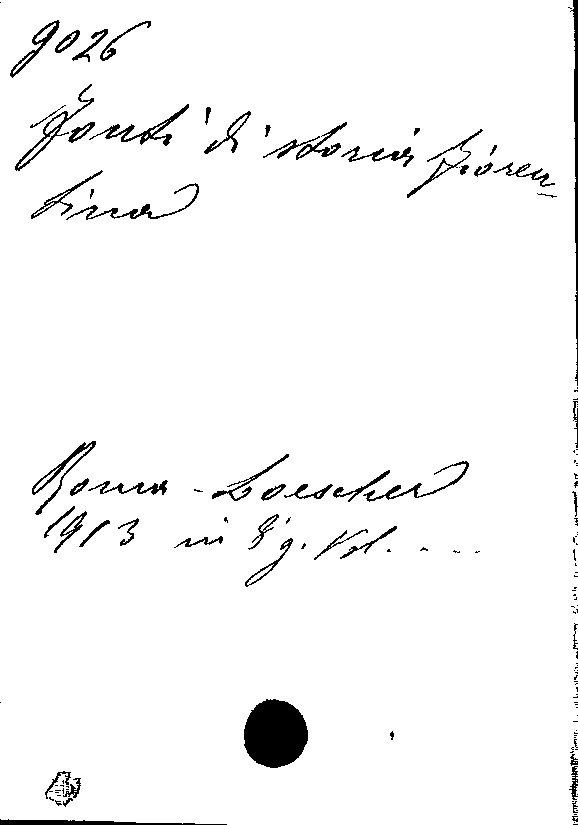 9026
Fonti di storia fioren-
tina
Roma - Loescher
1913 in 8° g. Vol. ....